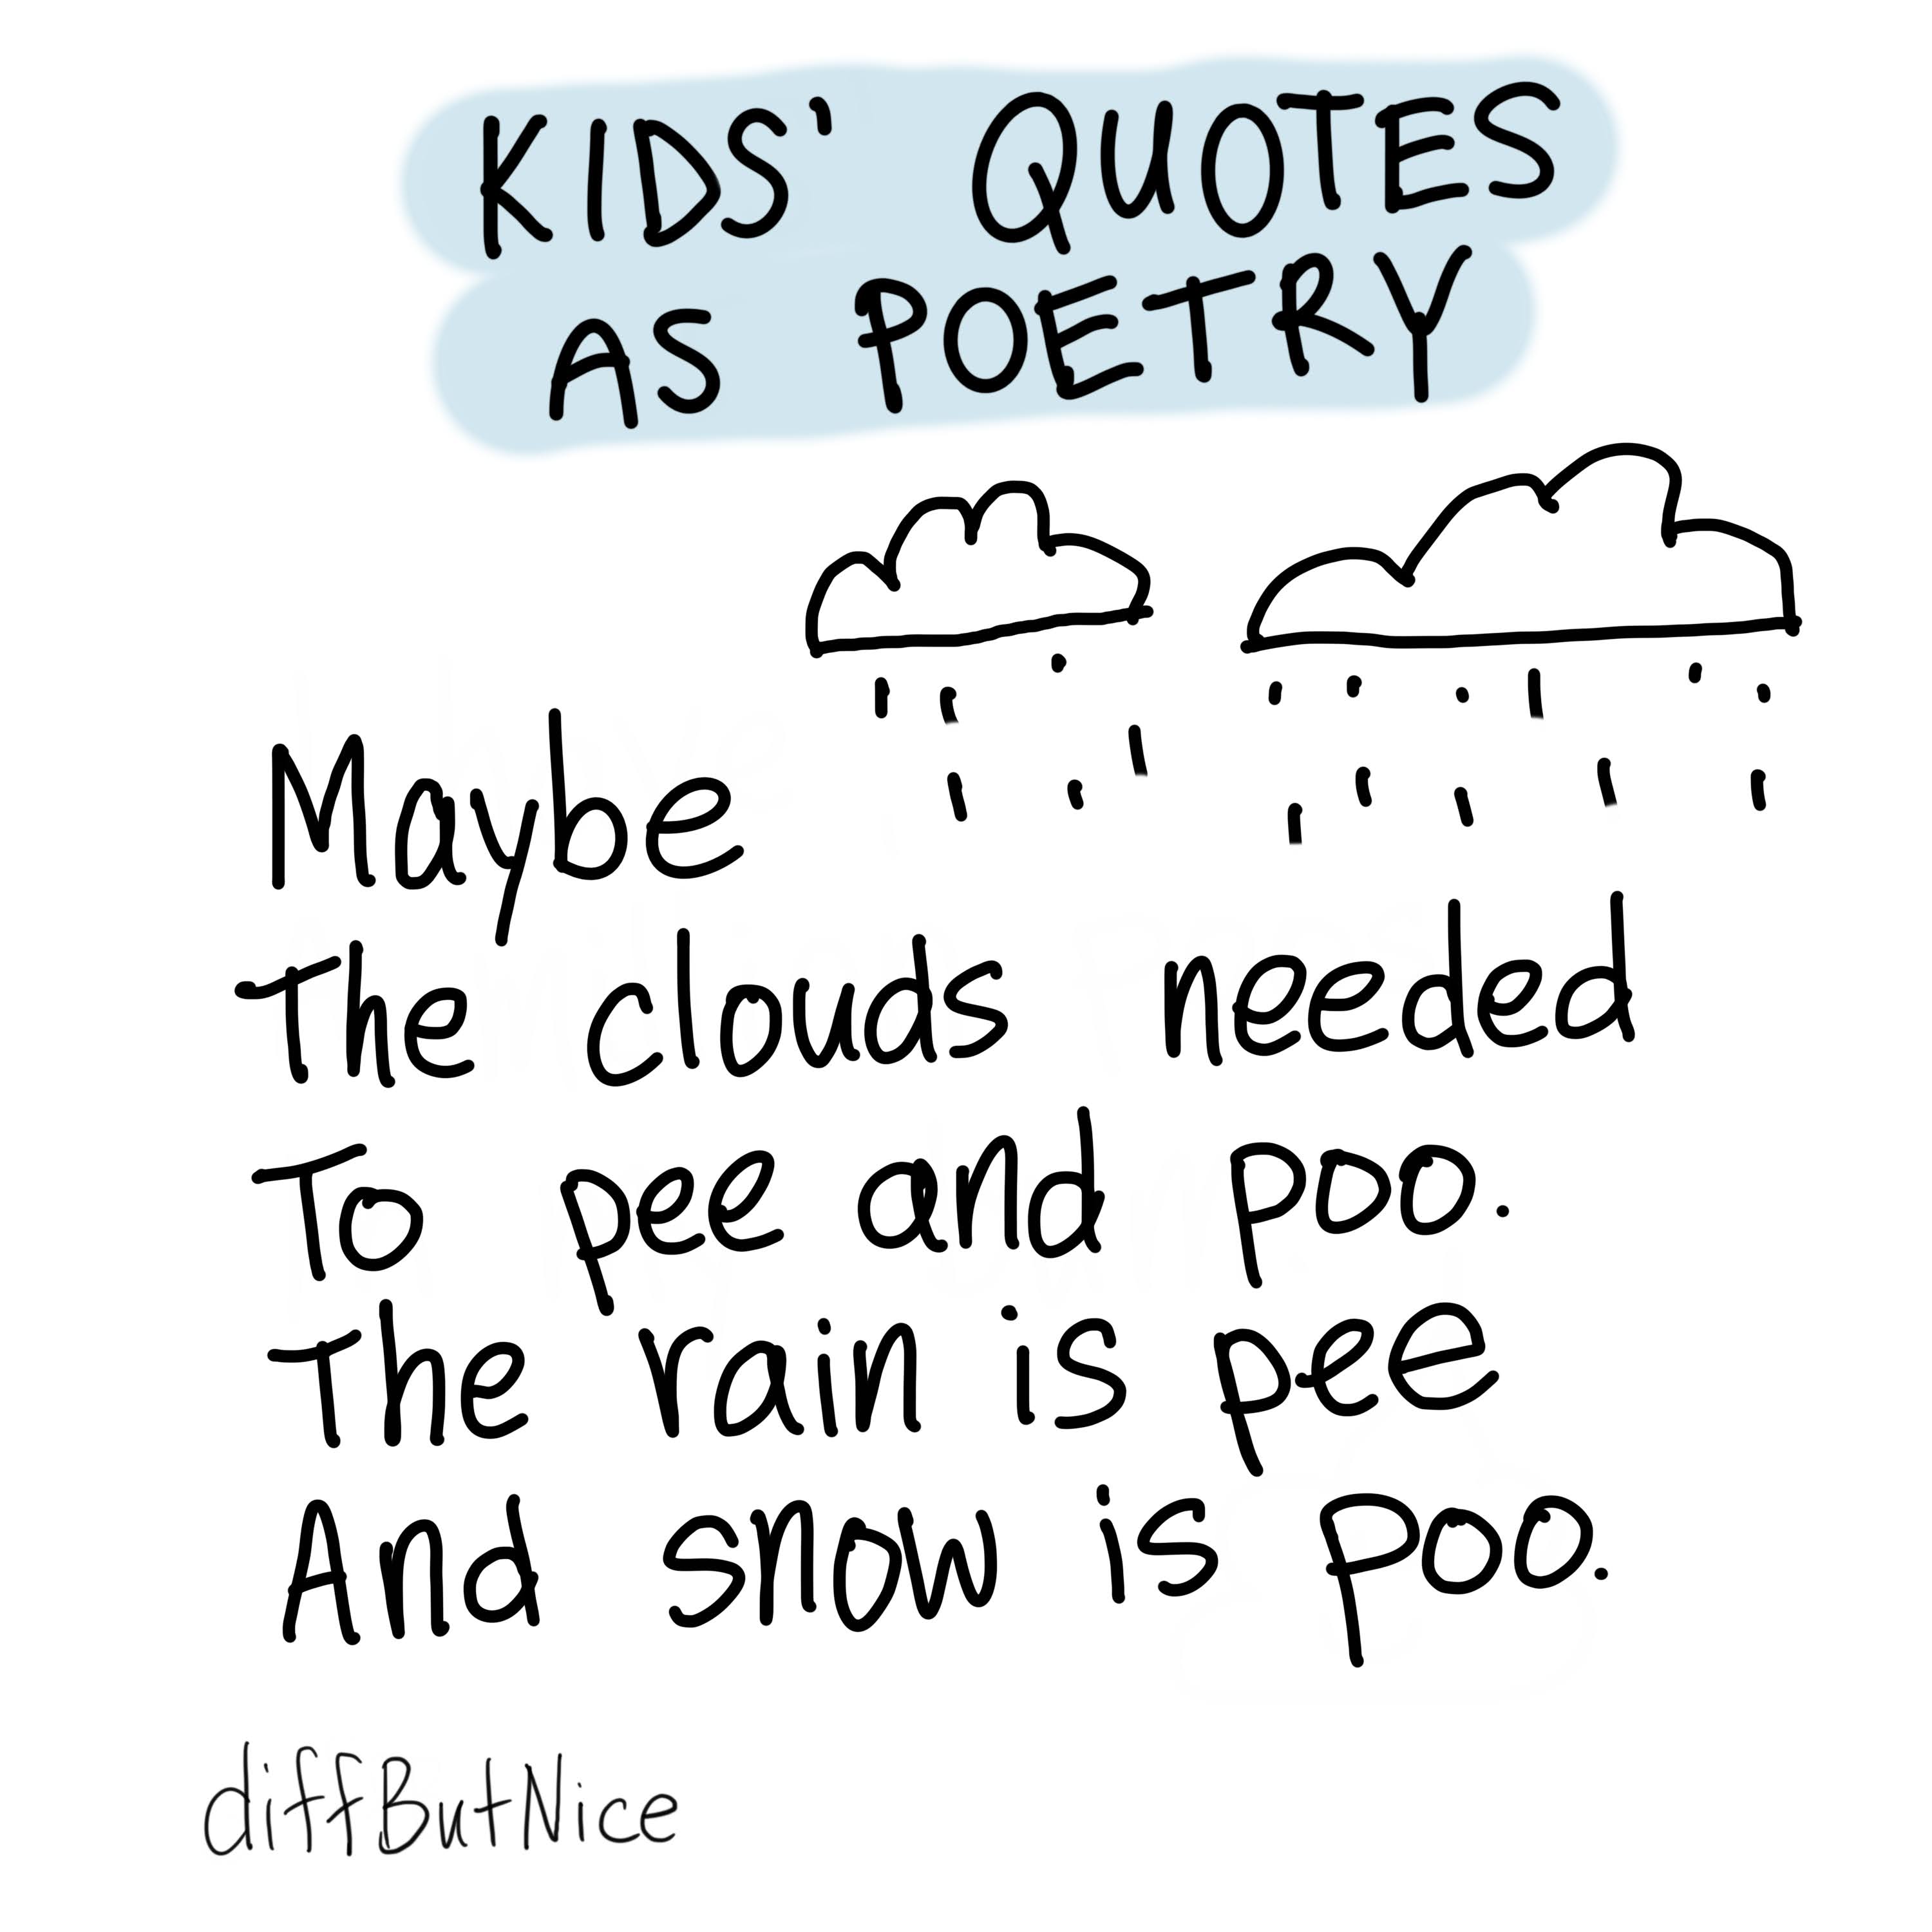 KIDS' QUOTES
AS POETRY
Maybe
The clouds needed
To pee and poo.
The rain is pee
And snow is poo.
diffButNice